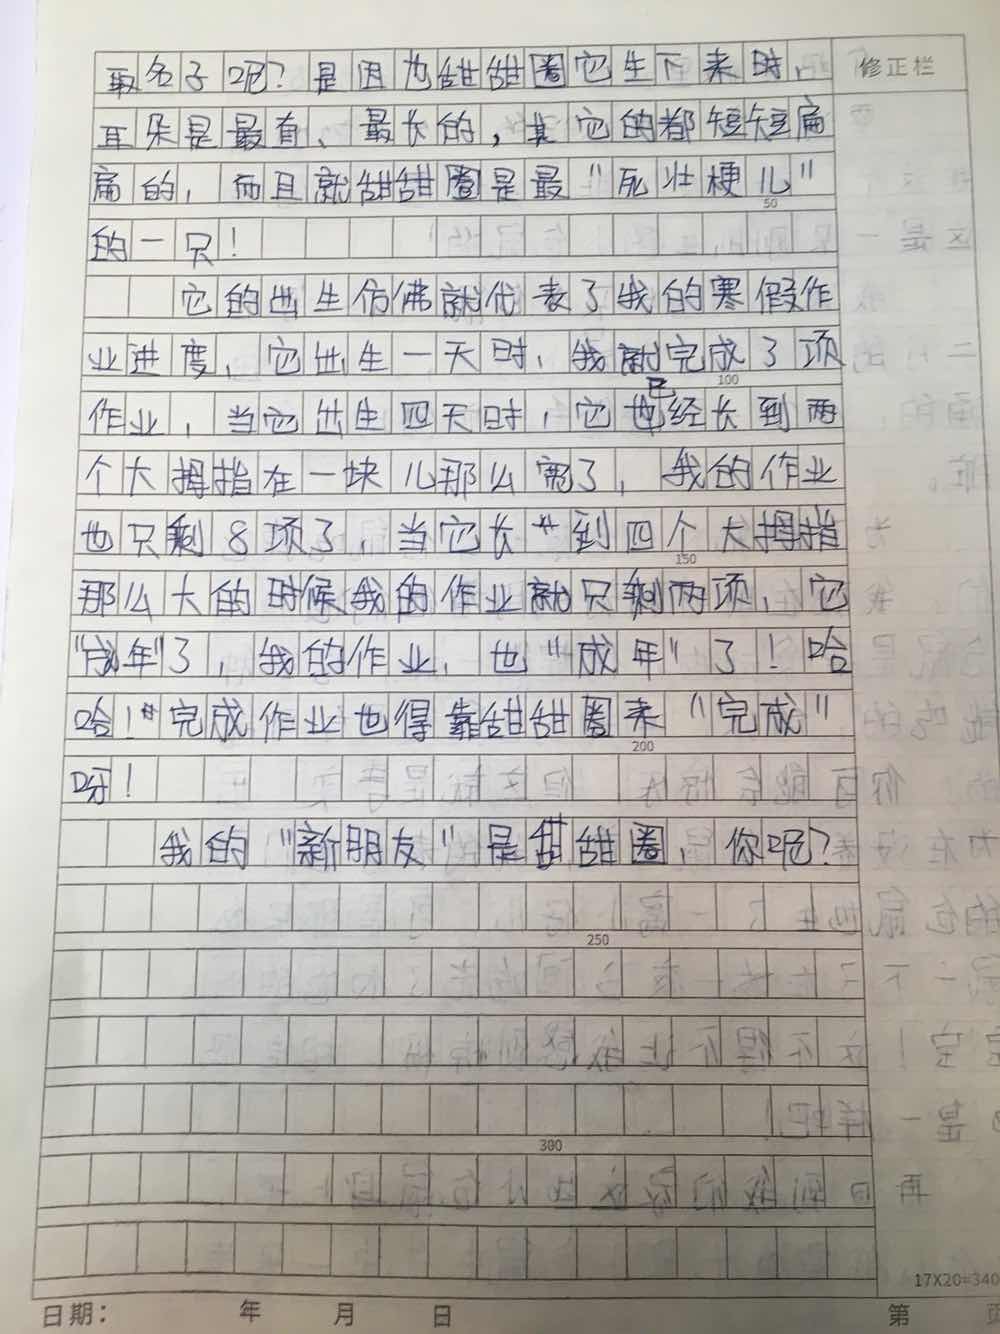 取名子呢？是因为甜甜圈它生下来时， 修正栏
耳朵是最直、最长的，其它的都短短扁
扁的，而且就甜甜圈是最“死壮梗儿”
50
的一只！
它的出生仿佛就代表了我的寒假作
业进度，它出生一天时，我就完成了项
100
作业，当它出生四天时，它已经长到两
个大拇指在一块儿那么宽了，我的作业
也只剩8项了，当它长到四个大拇指
150
那么大的时候我的作业就只剩两项，它
“成年”了，我的作业，也“成年”了！哈
哈！完成作业也得靠甜甜圈来“完成”
200
呀！
我的“新朋友”是甜甜圈，你呢？
250
300
17X20=340
日期： 年 月 日 第